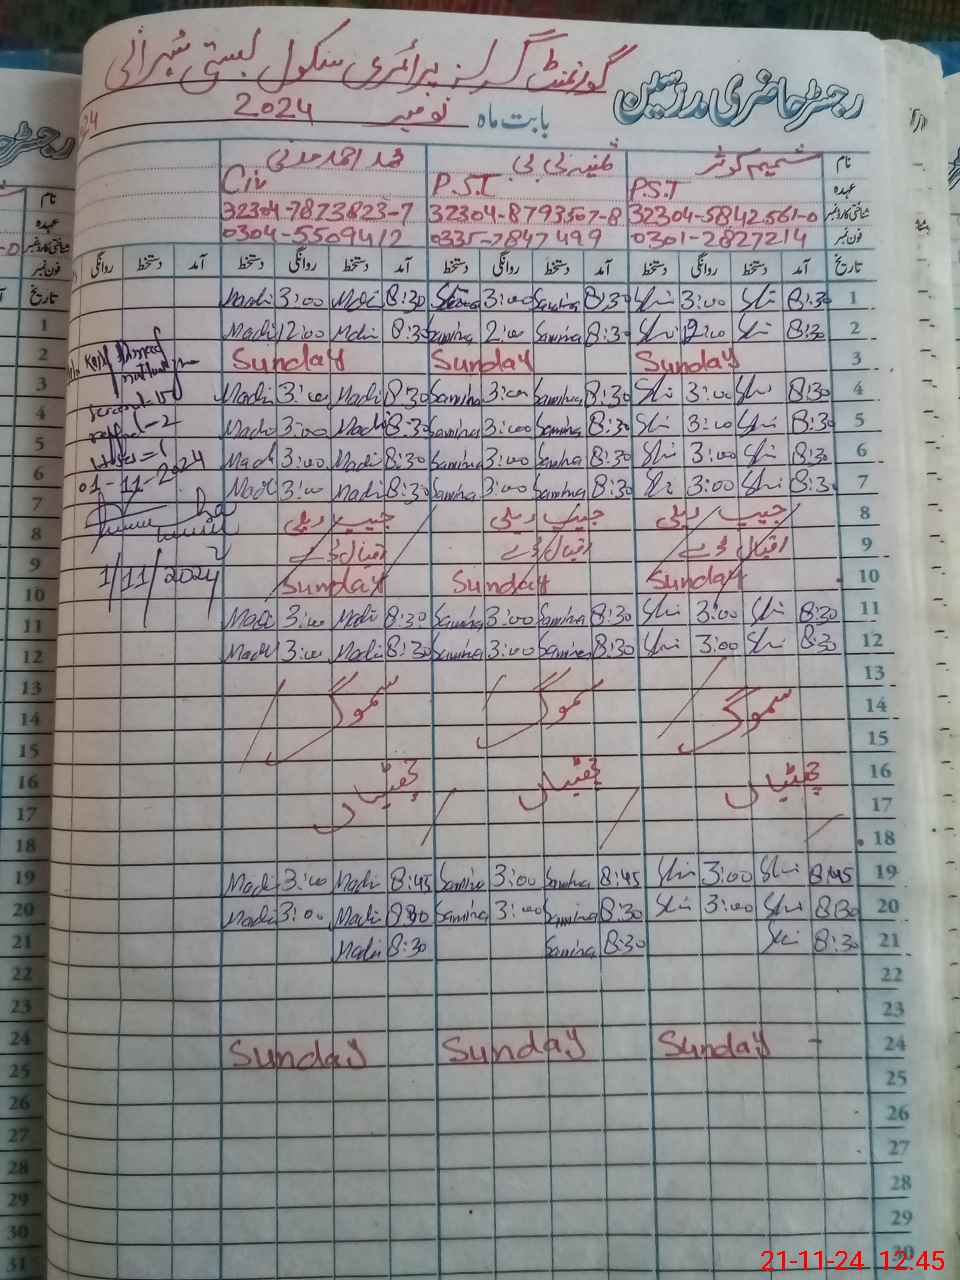 گورنمنٹ گرلز پرائمری سکول بستی شہرانی
رجسٹر حاضری مدرسین
بابت ماہ نومبر 2024
نام شمیم کوثر ثمینہ بی بی محمد احمد مدنی
عہدہ P.S.T P.S.T Civ
شناختی کارڈ نمبر 32304-5842561-0 32304-8793507-8 32304-7873823-7
فون نمبر 0301-2827214 0335-7847499 0304-5509412
تاریخ آمد دستخط روانگی دستخط آمد دستخط روانگی دستخط آمد دستخط روانگی
1 8:30 3:00 8:30 Samina 3:00 8:30 Madi 3:00 Madi
2 8:30 12:00 8:30 Samina 2:00 Samina 8:30 Madi 12:00 Madi
3 Sunday Sunday Sunday
4 8:30 3:00 8:30 Samina 3:00 Samina 8:30 Madi 3:00 Madi
5 8:30 3:00 8:30 Samina 3:00 Samina 8:30 Madi 3:00 Madi
6 8:30 3:00 8:30 Samina 3:00 Samina 8:30 Madi 3:00 Madi
7 8:30 3:00 8:30 Samina 3:00 Samina 8:30 Madi 3:00 Madi
01-11-2024
8
9 اقبال ڈے اقبال ڈے اقبال ڈے
10 Sunday Sunday Sunday
1/11/2024
11 8:30 3:00 8:30 Samina 3:00 Samina 8:30 Madi 3:00 Madi
12 8:30 3:00 8:30 Samina 3:00 Samina 8:30 Madi 3:00 Madi
13
14 سموگ سموگ سموگ
15
16 چھٹیاں چھٹیاں چھٹیاں
17
18
19 8:45 3:00 8:45 Samina 3:00 Samina 8:45 Madi 3:00 Madi
20 8:30 3:00 8:30 Samina 3:00 Samina 8:30 Madi 3:00 Madi
21 8:30 8:30 Samina 8:30 Madi
22
23
24 Sunday Sunday Sunday
25
26
27
28
29
30
21-11-24 12:45